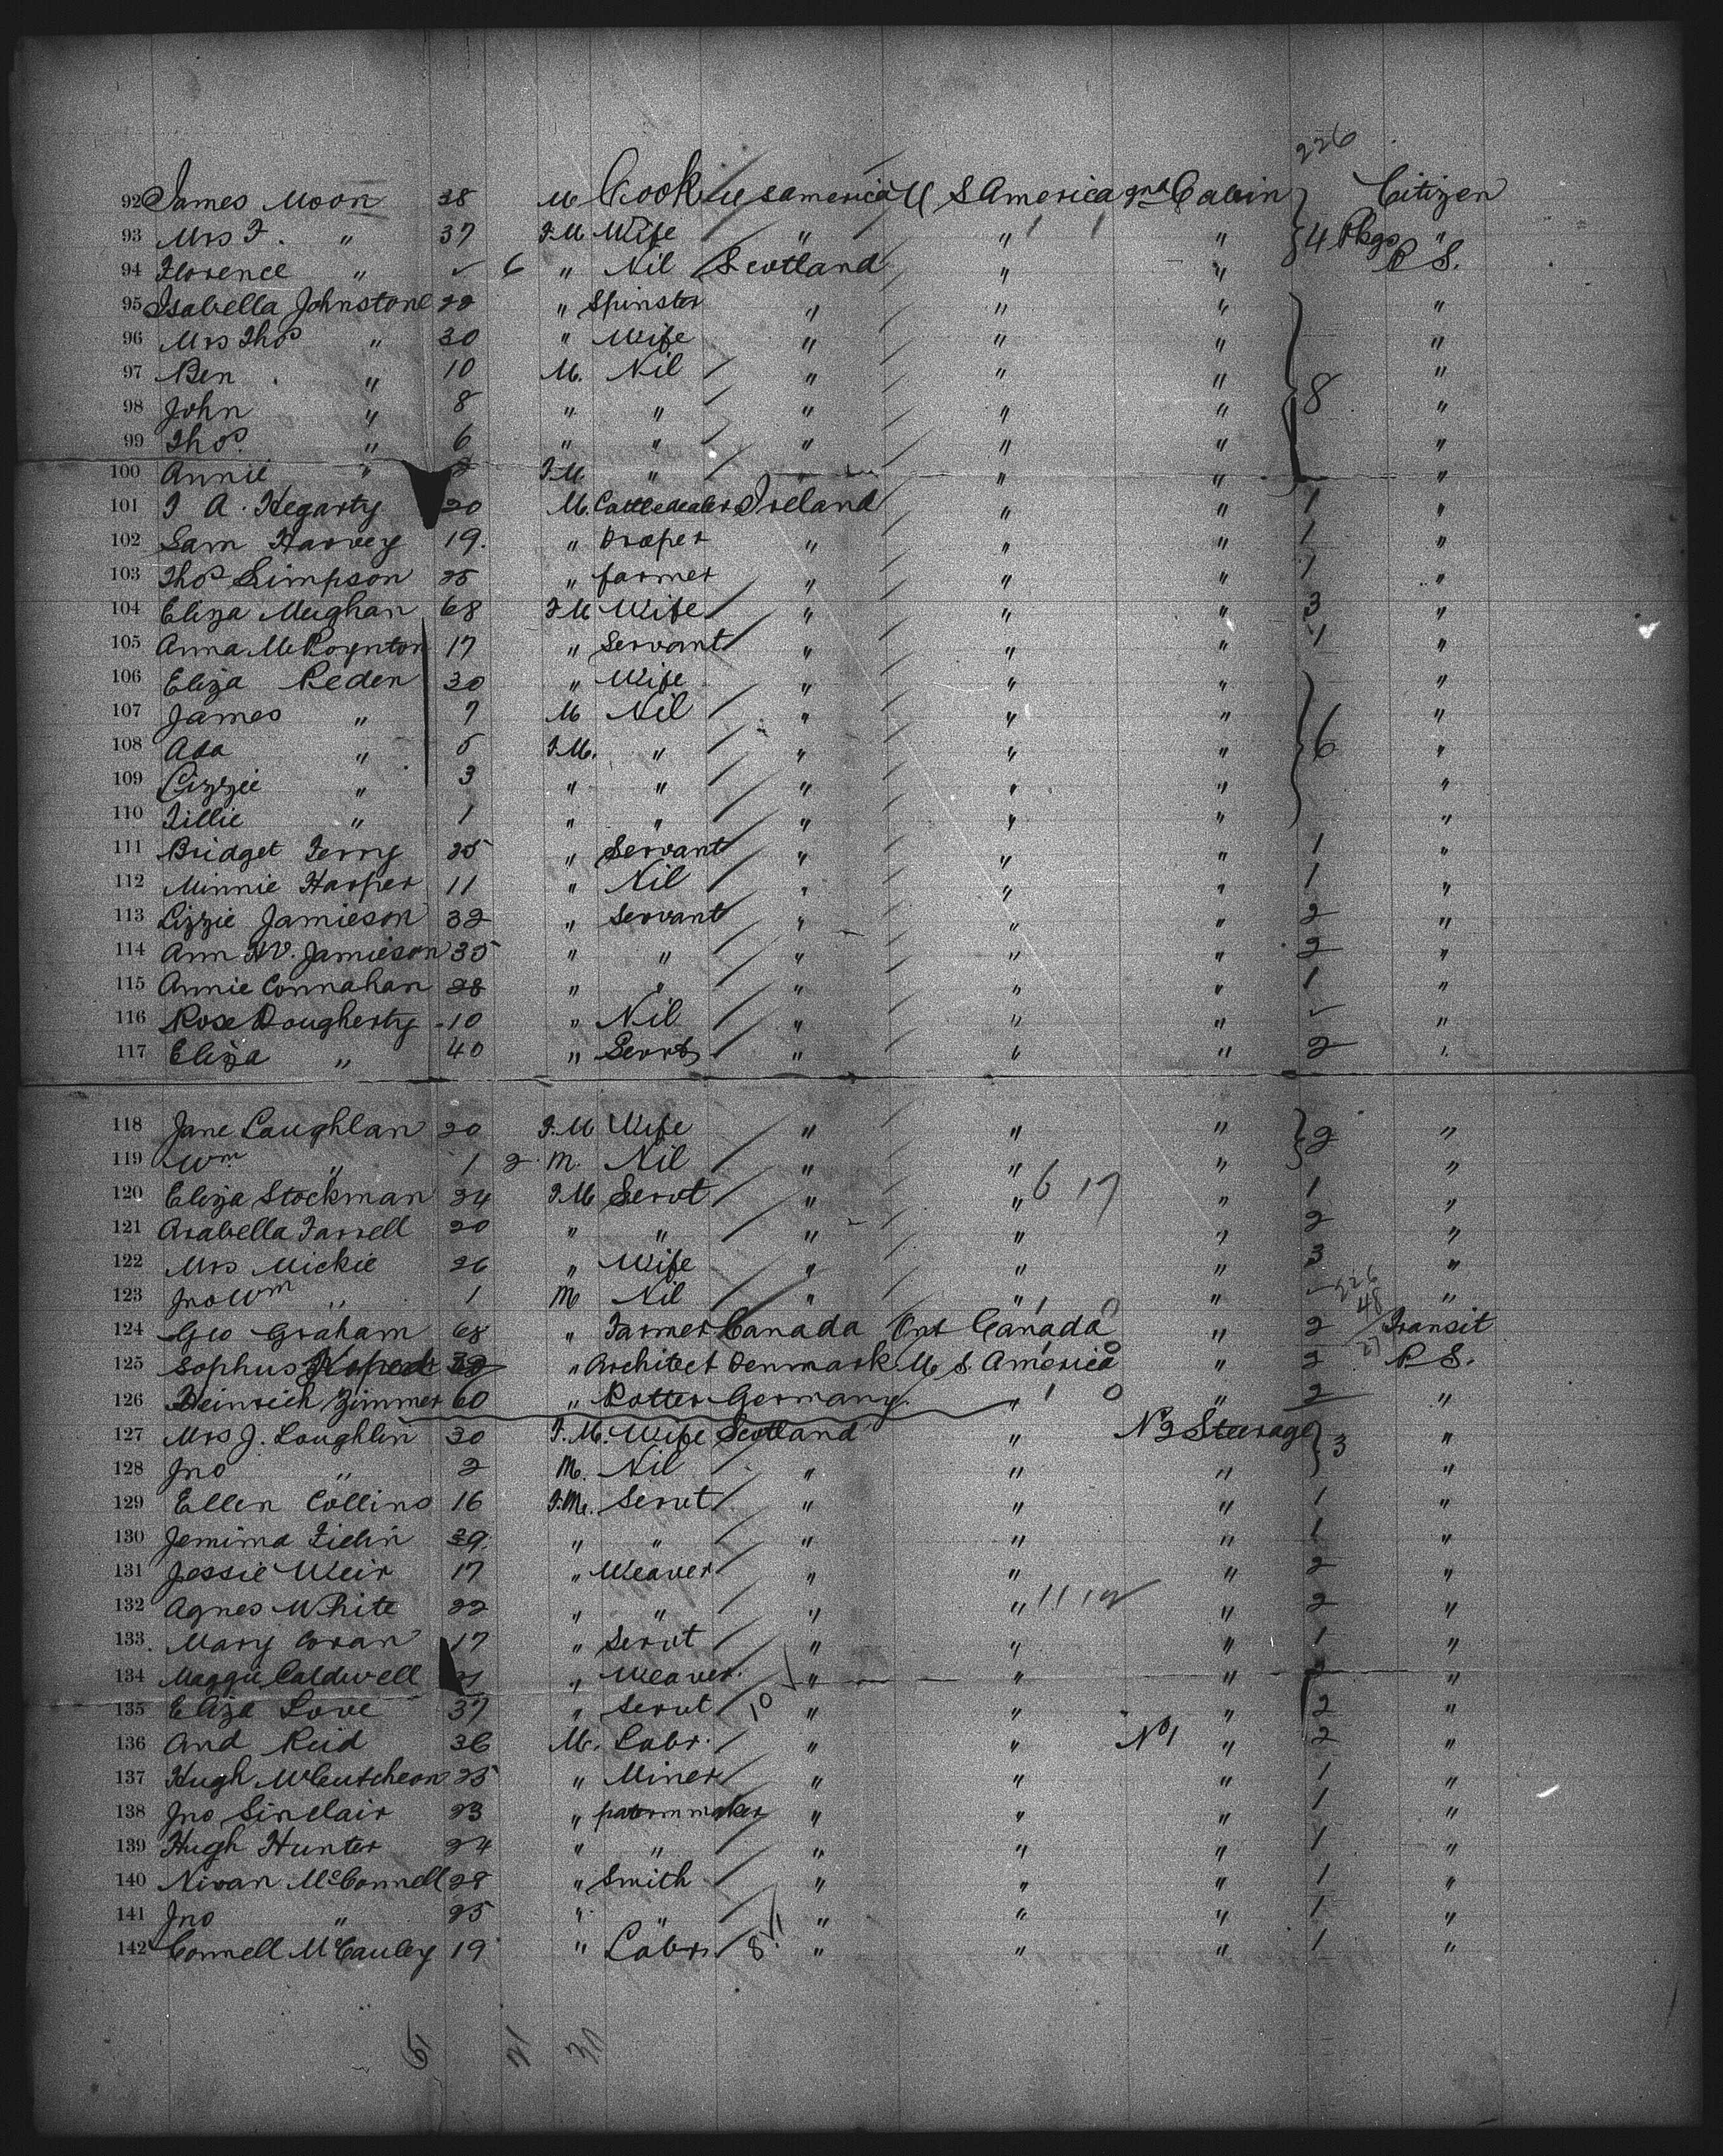 226
92 James Moon 38 M Cook U S America U S America 2nd Cabin Citizen
93 Mrs F. " 37 F.M Wife " " " 4 Pkgs "
94 Florence " ✓ 6 " Nil Scotland " " P S.
95 Isabella Johnstone 22 " Spinster " " " "
96 Mrs Thos " 30 " Wife " " " "
97 Ben . " 10 M. Nil " " " "
98 John " 8 " " " " " 8 "
99 Thos. " 6 " " " " " "
100 Annie " F.M " " " " "
101 J A. Hegarty 20 M. Cattledealer Ireland " " 1 "
102 Sam Harvey 19. " Draper " " " 1 "
103 Thos Simpson 25 " farmer " " " 1 "
104 Eliza Meighan 68 F.M Wife " " " 3 "
105 Anna McPoynton 17 " Servant " " " 1 "
106 Eliza Peden 30 " Wife " " " "
107 James " 7 M Nil " " " "
108 Ada " 5 F.M. " " " " 6 "
109 Lizzie " 3 " " " " " "
110 Tillie " 1 " " " " " "
111 Bridget Terry 25 " Servant " " " 1 "
112 Minnie Harper 11 " Nil " " " 1 "
113 Lizzie Jamieson 32 " Servant " " " 2 "
114 Ann W. Jamieson 35 " " " " " 2 "
115 Annie Connahan 28 " " " " " 1 "
116 Rose Dougherty 10 " Nil " " " ✓ "
117 Eliza " 40 " Servt " " " 2 "
118 Jane Laughlan 20 F.M Wife " " " 2 "
119 Wm " 1 2 M. Nil " " " "
120 Eliza Stockman 24 F.M Servt " " 6 17 " 1 "
121 Arabella Farrell 20 " " " " " 2 "
122 Mrs Mickie 26 " Wife " " " 3 "
123 Jno Wm " 1 M Nil " " " "
124 Geo Graham 68 " Farmer Canada Ont Canada " 2 Transit
125 Sophus 32 " Architect Denmark U S. America " 2 P S.
126 Heinrich Zimmer 60 " Potter Germany " 1 0 " 2 "
127 Mrs J. Loughlin 30 F.M. Wife Scotland " No 2 Steerage 3 "
128 Jno " 2 M. Nil " " " "
129 Ellen Collins 16 F.M. Servt " " " 1 "
130 Jemima 29. " " " " " 1 "
131 Jessie Weir 17 " Weaver " " " 2 "
132 Agnes White 22 " " " " " 2 "
133. Mary Coran 17 " Servt " " " 1 "
134 Maggie Caldwell 21 " Weaver. " " " "
135 Eliza Love 37 " Servt 10 " " " 2 "
136 And Reid 36 M. Labr. " " No 1 " 2 "
137 Hugh McCutcheon 25 " Miner " " " 1 "
138 Jno Sinclair 23 " paternmaker " " " 1 "
139 Hugh Hunter 24 " " " " " 1 "
140 Nivan McConnell 28 " Smith " " " 1 "
141 Jno " 25 " " " " " 1 "
142 Connell McCauley 19 " Labr 8 " " " 1 "